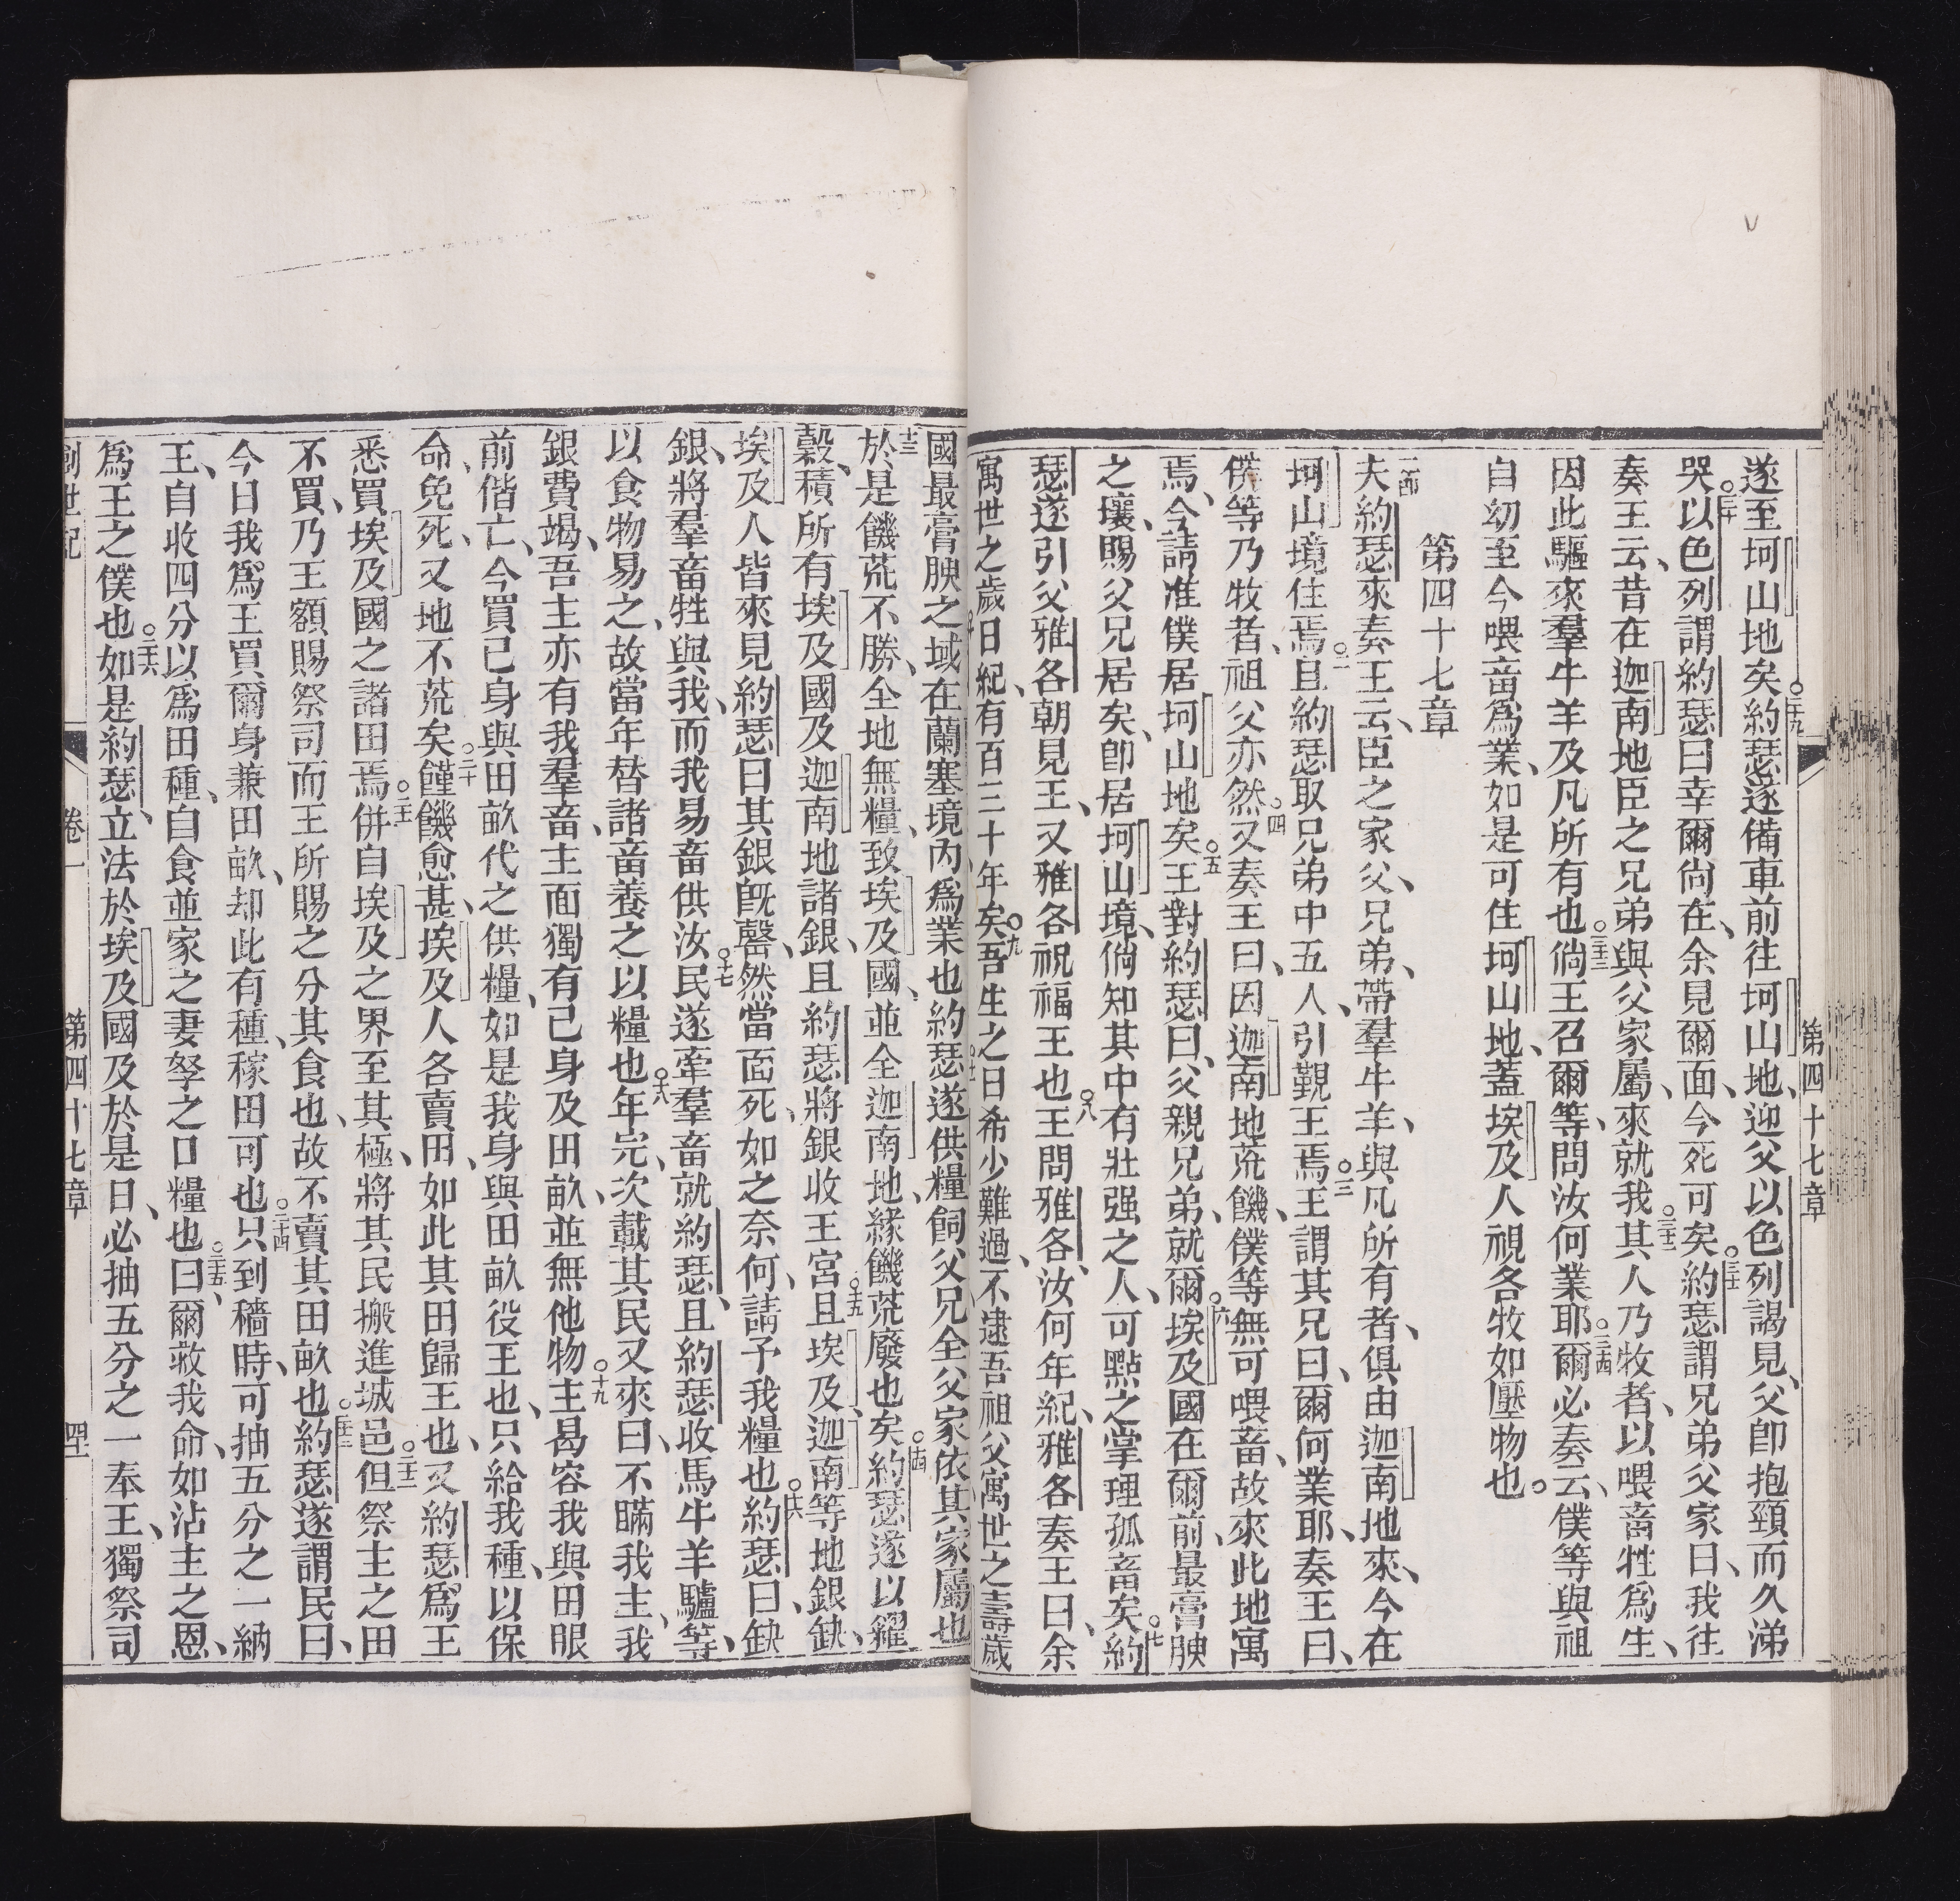 遂至坷山地矣○二十九約瑟遂備車前往坷山地、迎父以色列謁見、父卽抱頸而久涕
哭○三十以色列謂約瑟曰幸爾尙在、余見爾面、今死可矣○三十一約瑟謂兄弟父家曰、我往
奏王云、昔在迦南地臣之兄弟與父家屬、來就我○三十二其人乃牧者、以喂畜牲爲生、
因此驅來羣牛羊及凡所有也○三十三倘王召爾等、問汝何業耶○三十四爾必奏云、僕等與祖
自幼至今喂畜爲業、如是可住坷山地、蓋埃及人視各牧如壓物也。
第四十七章
一節夫約瑟來奏王云、臣之家父、兄弟、帶羣牛羊、與凡所有者、俱由迦南地來、今在
坷山境住焉○二且約瑟取兄弟中五人、引覲王焉○三王謂其兄曰、爾何業耶、奏王曰、
僕等乃牧者、祖父亦然○四又奏王曰、因迦南地荒饑、僕等無可喂畜、故來此地寓
焉、今請准僕居坷山地矣○五王對約瑟曰、父親兄弟、就爾○六埃及國在爾前、最膏腴
之壤、賜父兄居矣、卽居坷山境、倘知其中有壯强之人、可點之掌理孤畜矣○七約
瑟遂引父雅各朝見王、又雅各祝福王也○八王問雅各、汝何年紀、雅各奏王曰、余
寓世之歲日紀、有百三十年矣○九吾生之日希少難過、不逮吾祖父寓世之壽歲
國最膏腴之域在蘭塞境內爲業也約瑟遂供糧飼父兄全父家依其家屬也
十三於是饑荒不勝、全地無糧、致埃及國、並全迦南地、緣饑荒廢也矣○十四約瑟遂以糴
穀、積所有埃及國及迦南地諸銀、且約瑟將銀收王宮○十五且埃及、迦南等地銀缺、
埃及人皆來見約瑟曰其銀旣罄、然當面死、如之奈何、請予我糧也○十六約瑟曰、缺
銀、將羣畜牲與我、而我易畜供汝民○十七遂牽羣畜就約瑟、且約瑟收馬牛羊驢等、
以食物易之、故當年替諸畜養之以糧也○十八年完、次載其民又來曰、不瞞我主、我
銀費竭、吾主亦有我羣畜、主面獨有己身及田畝、並無他物○十九主曷容我與田眼
前偕亡、今買己身與田畝代之供糧、如是我身與田畝役王也、只給我種、以保
命、免死、又地不荒矣○二十饉饑愈甚、埃及人各賣田、如此其田歸王也、又約瑟爲王
悉買埃及國之諸田焉○二十一併自埃及之界至其極、將其民搬進城邑○二十二但祭主之田
不買、乃王額賜祭司而王所賜之分其食也、故不賣其田畝也○二十三約瑟遂謂民曰、
今日我爲王買爾身兼田畝、却此有種、稼田可也○二十四只到穡時、可抽五分之一納
王、自收四分以爲田種、自食並家之妻孥之口糧也○二十五曰、爾救我命、如沾主之恩、
爲王之僕也○二十六如是約瑟、立法於埃及國及於是日、必抽五分之一奉王、獨祭司
創世記　卷一　第四十七章　四十
第四十七章